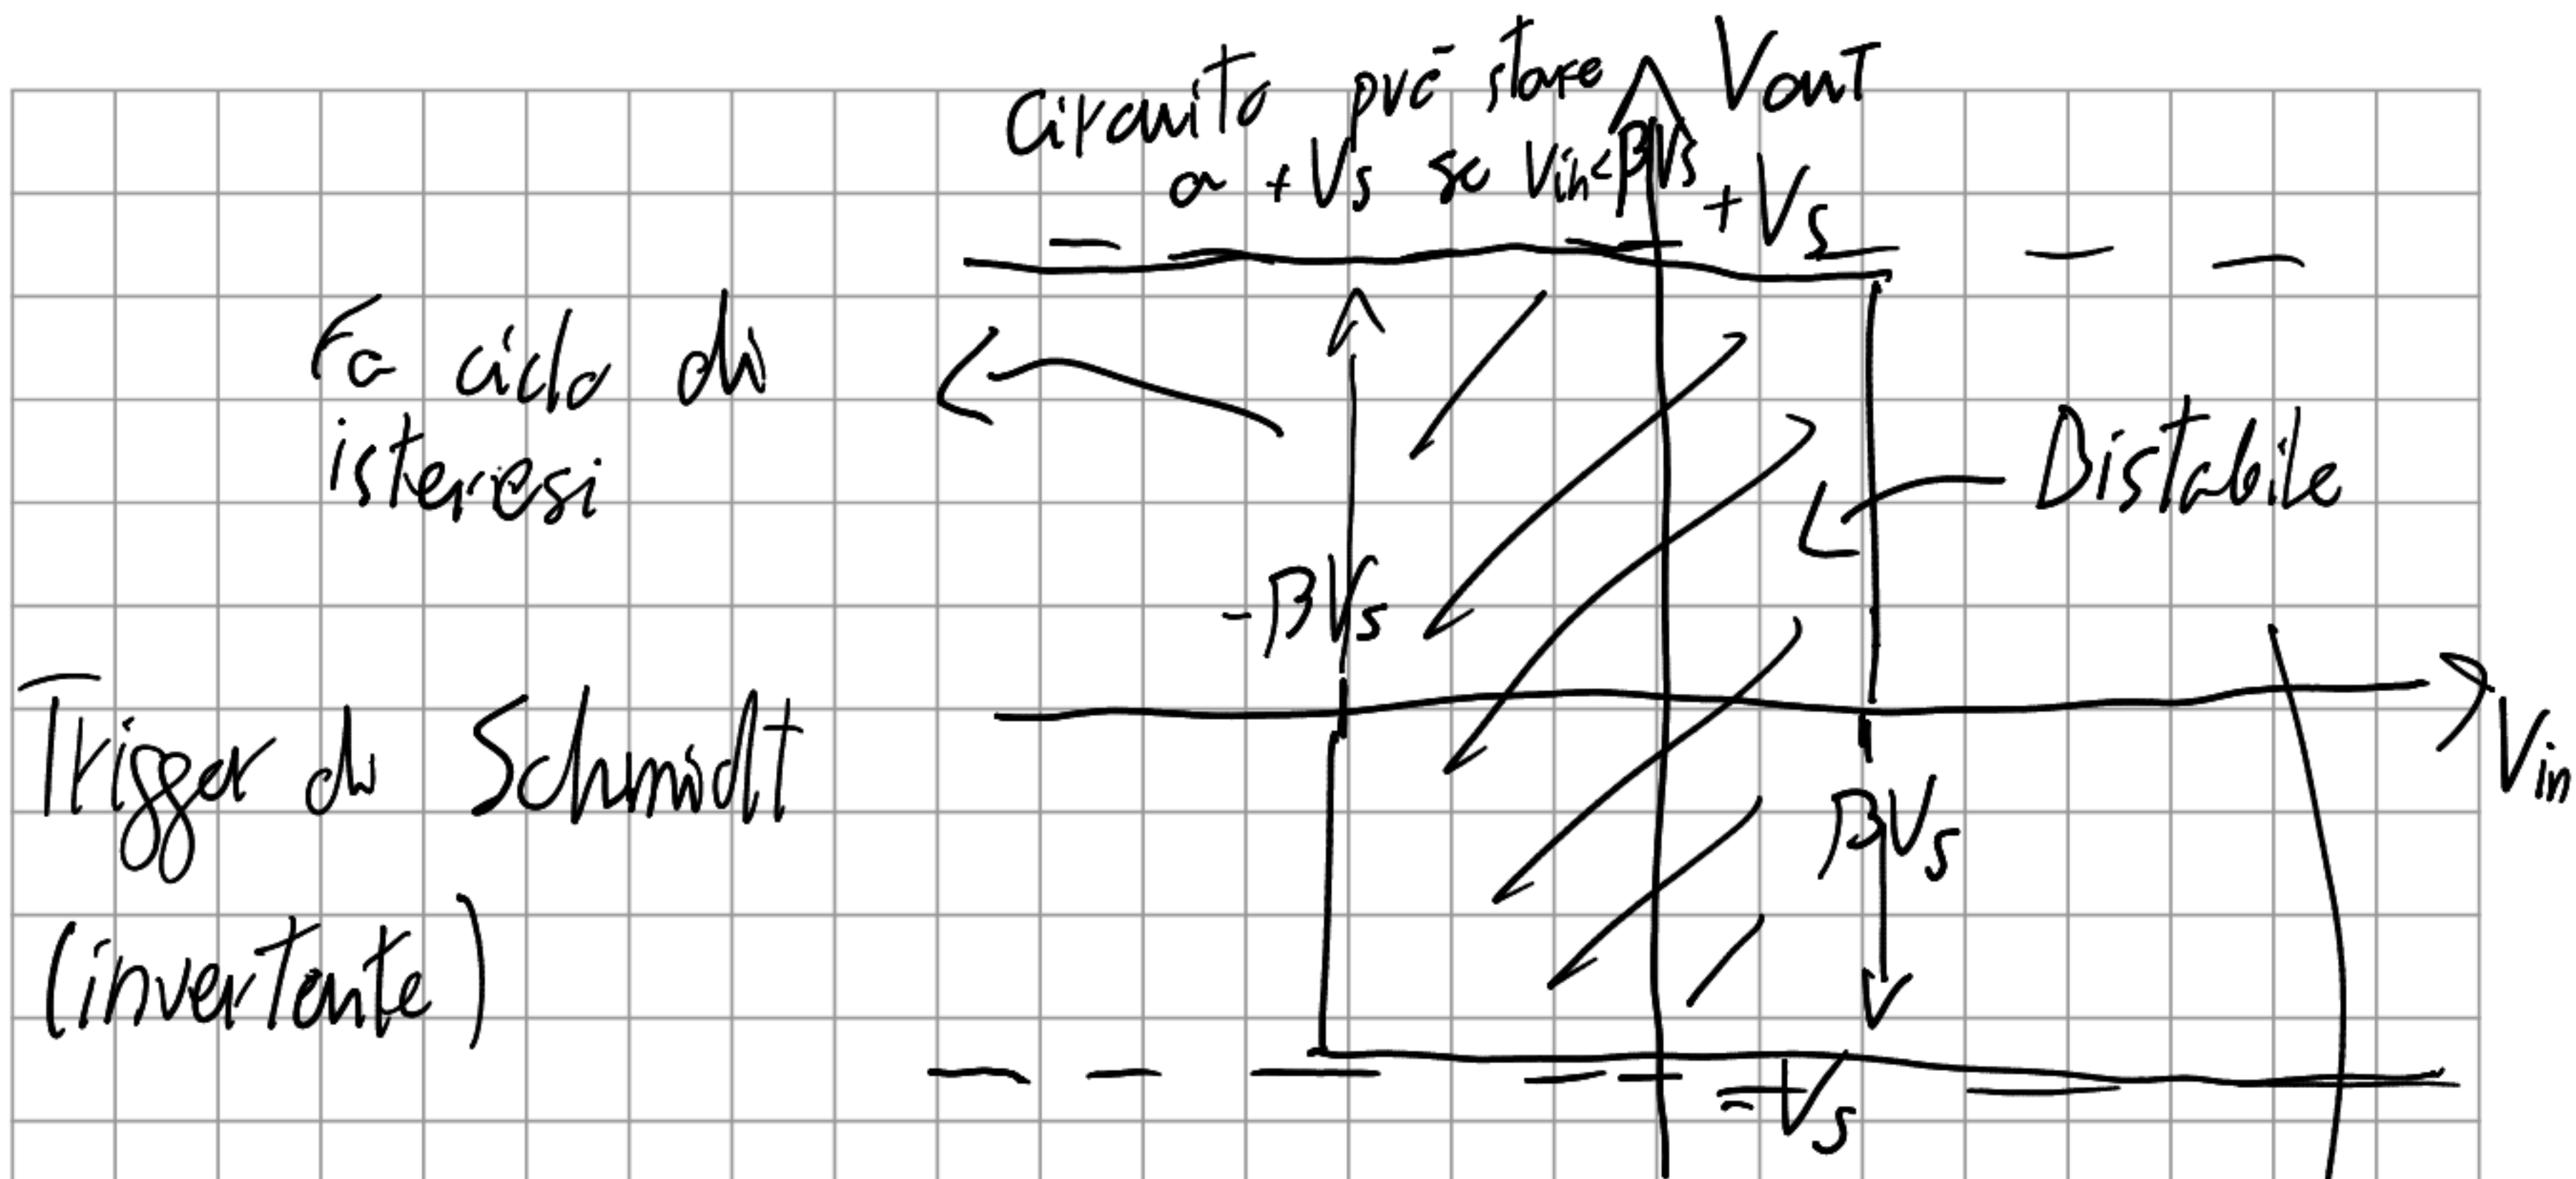 Circuito può stare
a +Vs se Vin<βVs
Vout
+Vs
Fa ciclo di
isteresi
Bistabile
-βVs
Trigger di Schmidt
(invertente)
Vin
βVs
-Vs